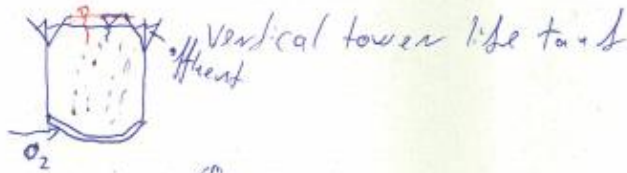 vertical tower like tank
effluent
O2